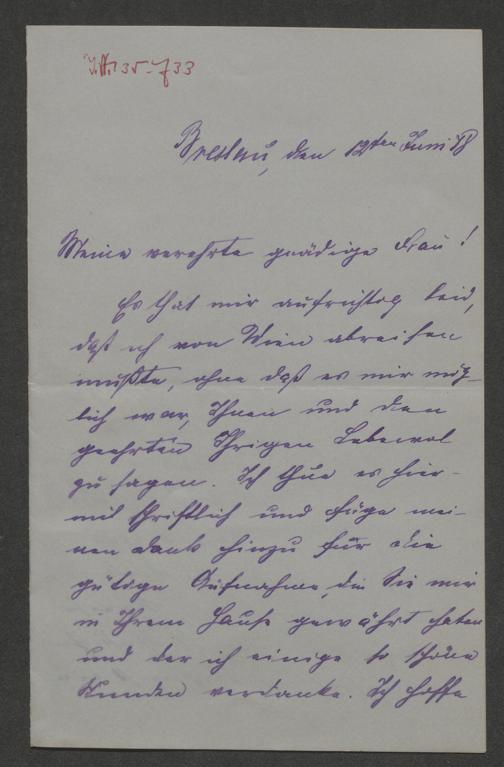 Breslau, den 12ten Juni 78
Meine verehrte gnädige Frau!
Es that mir aufrichtig leid,
daß ich von Wien abreisen
mußte, ohne daß es mir mög-
lich war, Ihnen und den
geehrten Ihrigen Lebewol
zu sagen. Ich thue es hier-
mit schriftlich und füge mei-
nen Dank hinzu für die
gütige Aufnahme, die Sie mir
in Ihrem Hause gewährt haben
und der ich einige so schöne
Stunden verdanke. Ich hoffe